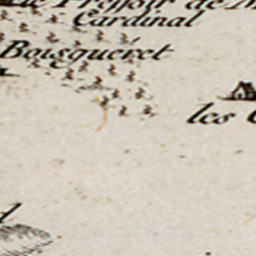 Le Pressoir de
Cardinal
Bousqueret
les